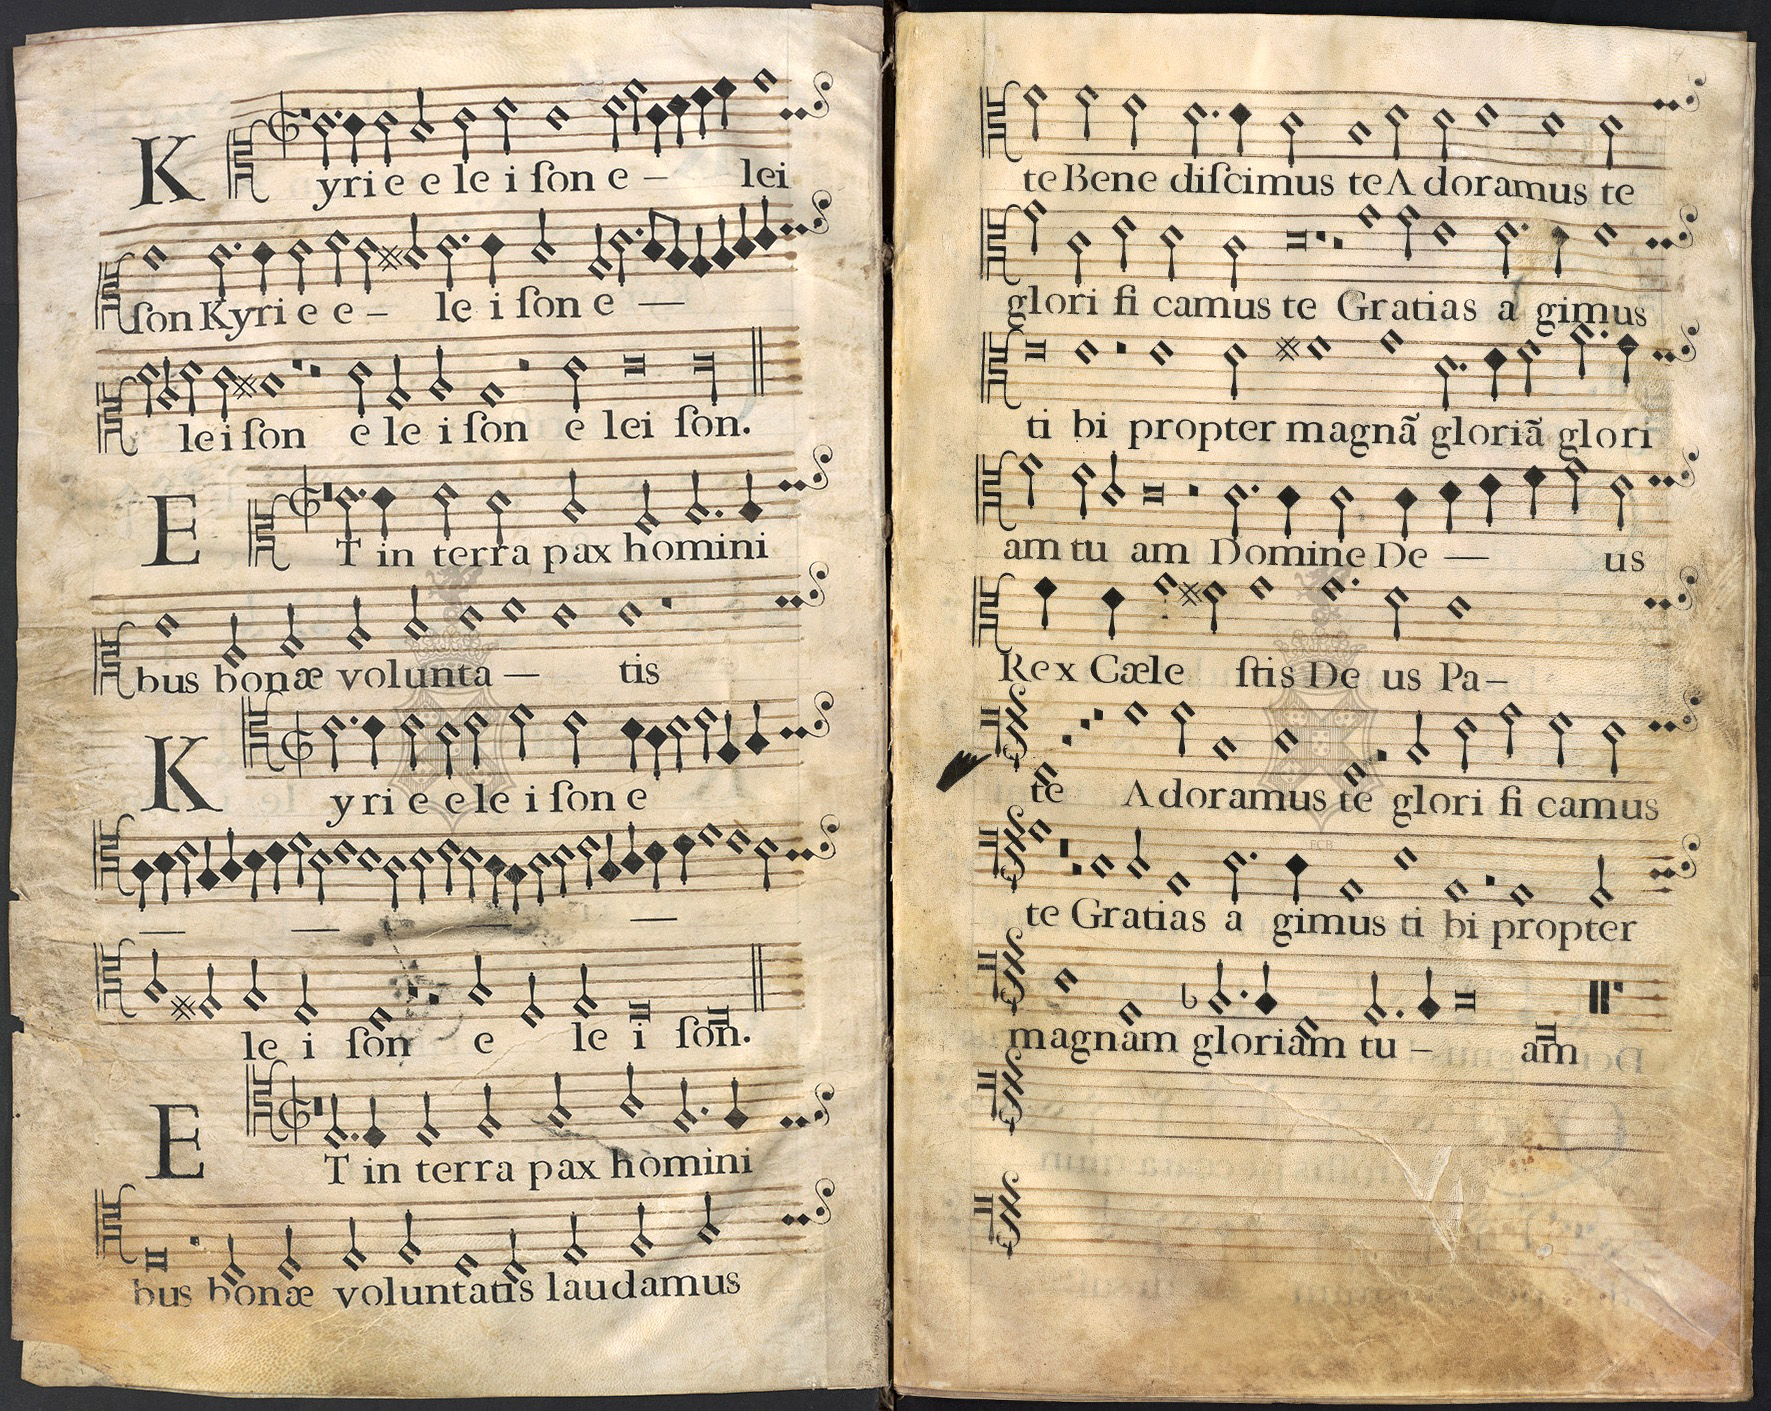 Kyrie e le i ſon e – lei
ſon Kyri e e – le i ſon e —
le i ſon e le i ſon e lei ſon.
ET in terra pax homini
bus bonæ volunta — tis
Kyri e e le i ſon e
— — — —
le i ſon e le i ſon.
ET in terra pax homini
bus bonæ voluntatis laudamus
te Bene diſcimus te A doramus te
glori fi camus te Gratias a gimus
ti bi propter magnã gloriã glori
am tu am Domine De — us
Rex Cæle ſtis De us Pa–
te Adoramus te glori fi camus
te Gratias a gimus ti bi propter
magnam gloriam tu – am